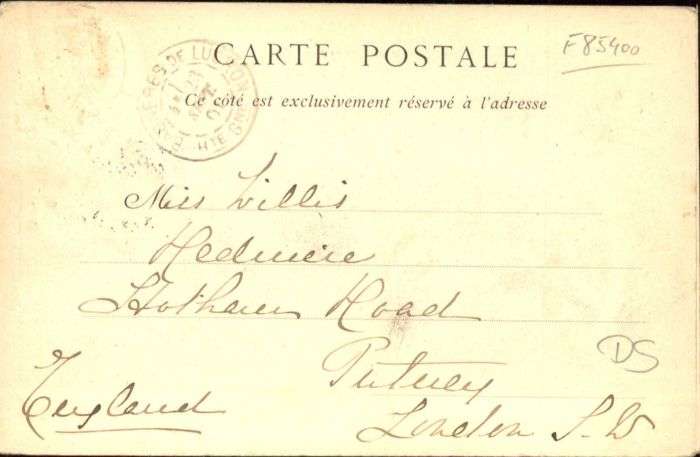 CARTE POSTALE
F85400
Ce côté est exclusivement réservé à l'adresse
DE LUCHON
Hte GNE
Miss Willis
Redmere
Hotham Road
Putney
DS
England
London S.W